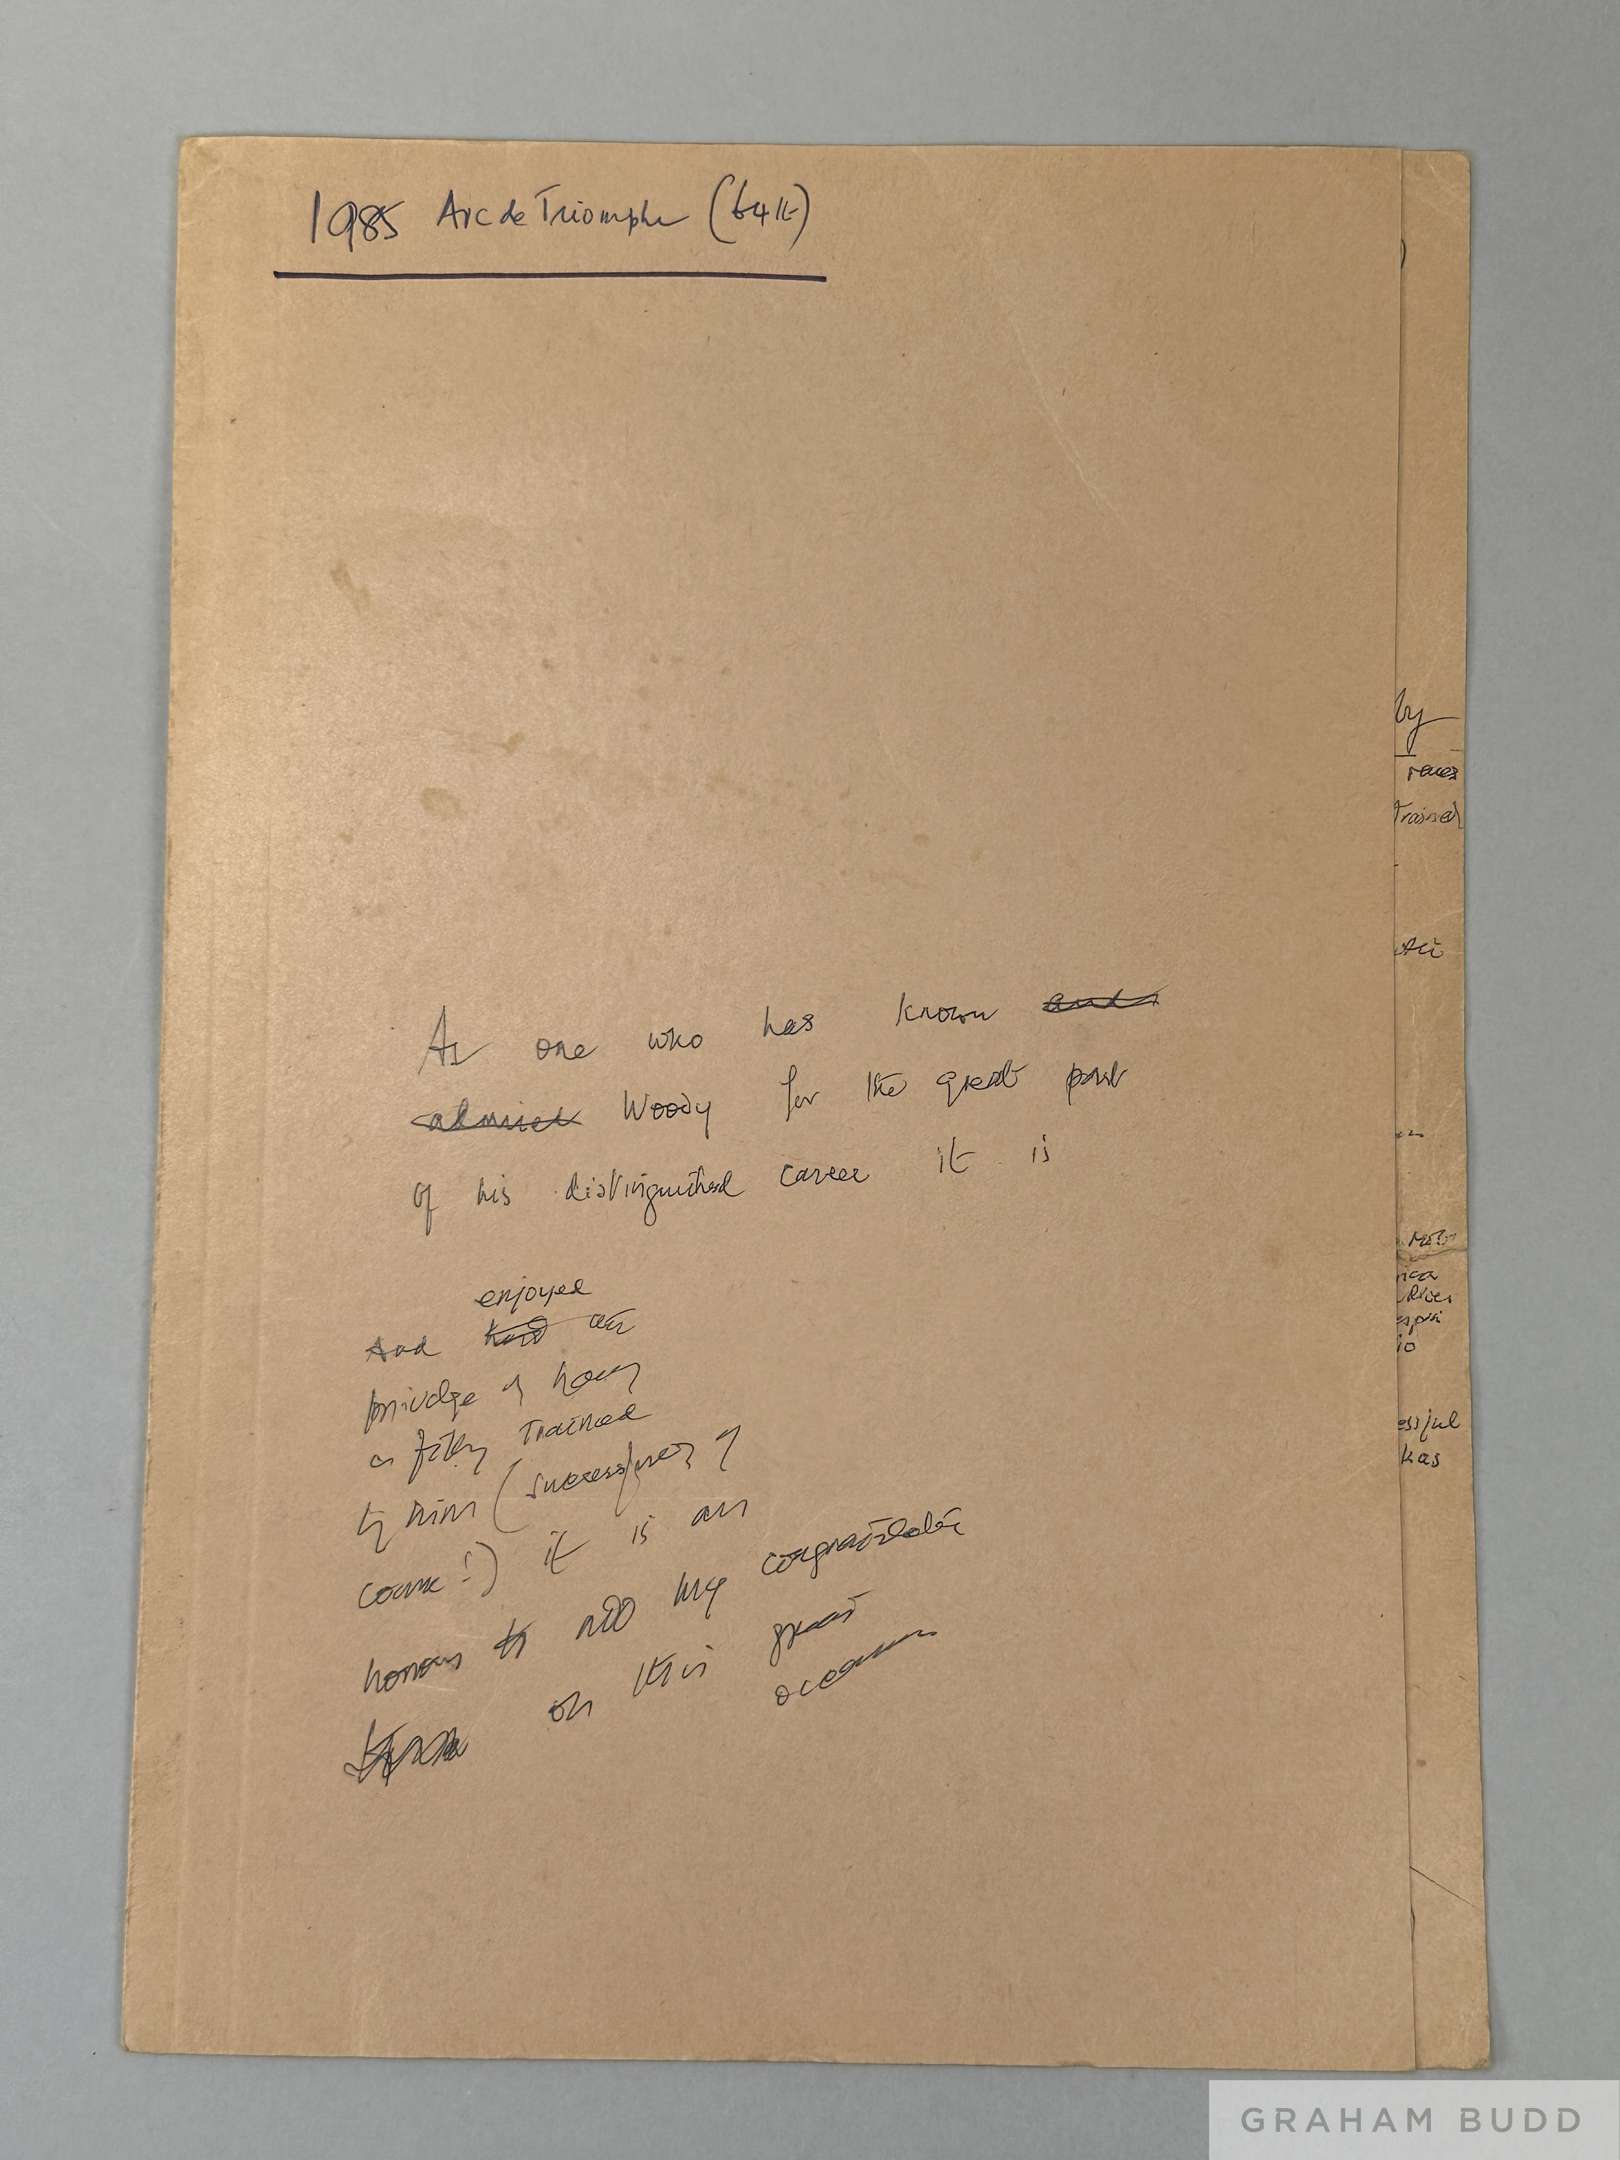 1985 Arc de Triomphe (64th)
As one who has known and
admired Woody for the great part
of his distinguished career it is
enjoyed
And had the
privilege of having
a filly trained
by him (successfully of
course!) it is an
honour to add my congratulations
on this great
occasion
by
races
Trained
essful
has
GRAHAM BUDD